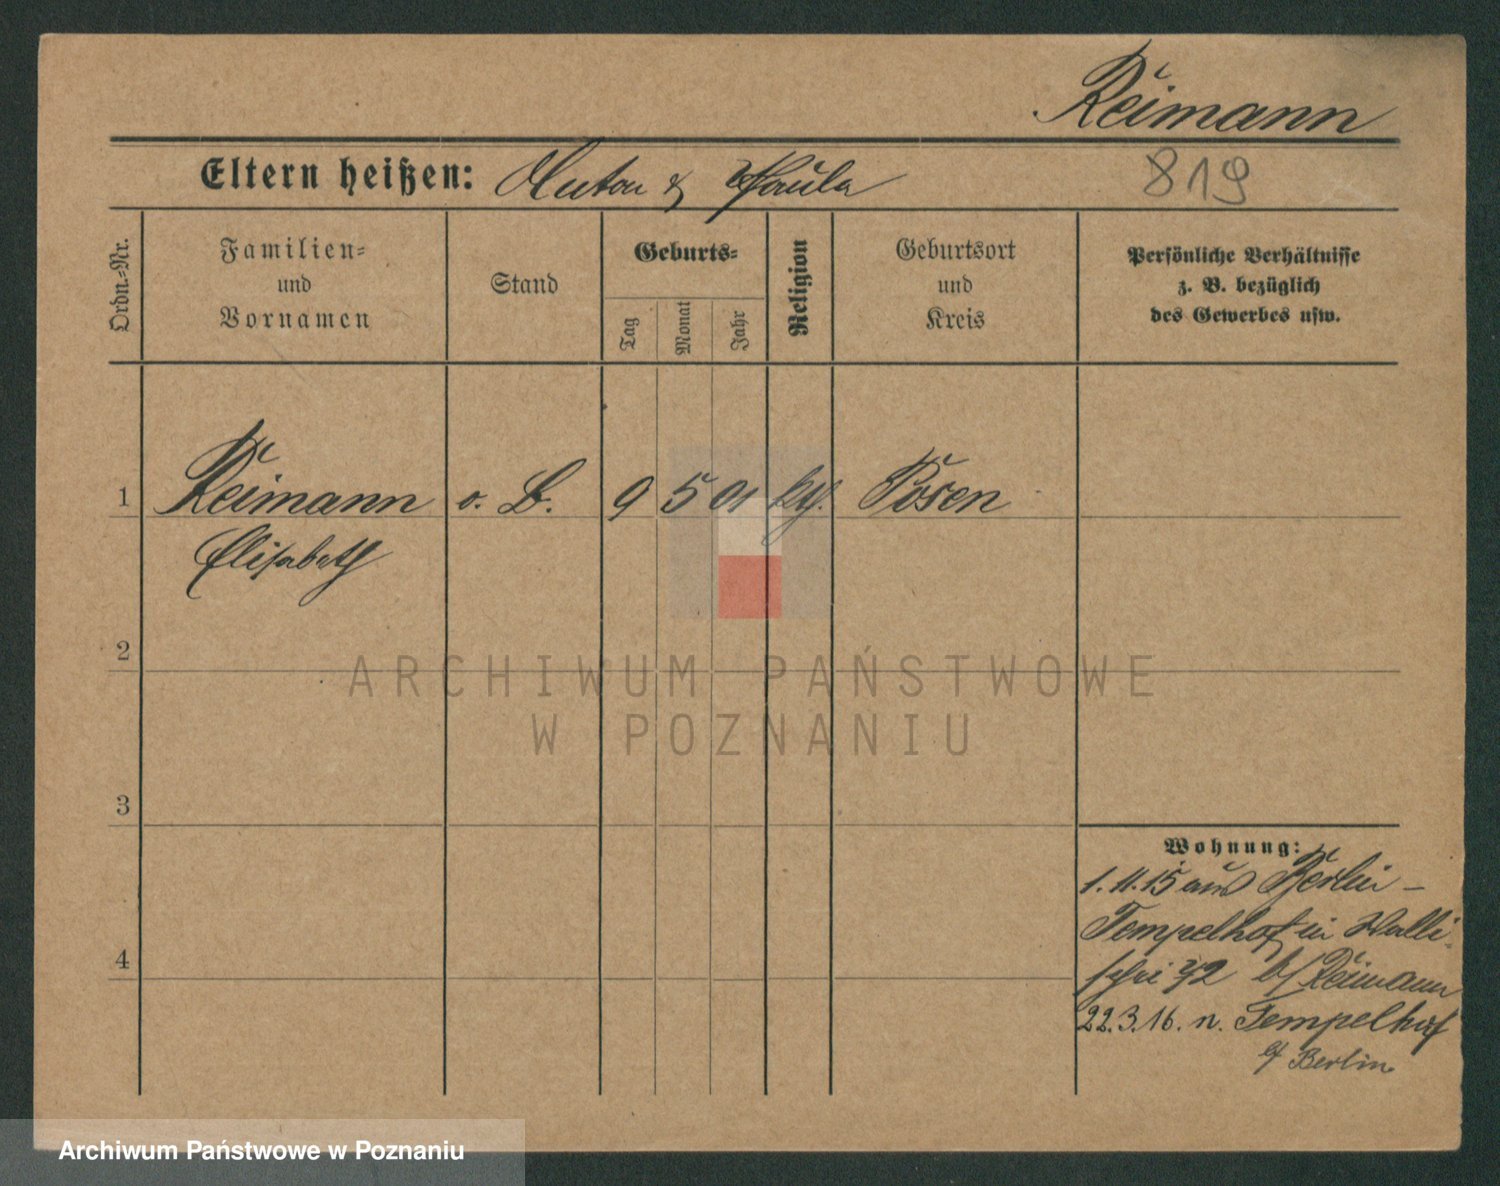 Reimann
Eltern heißen: Anton & Paula
819
Ordn.-Nr.
Familien-
und
Vornamen
Stand
Geburts-
Tag
Monat
Jahr
Religion
Geburtsort
und
Kreis
Persönliche Verhältnisse
z. B. bezüglich
des Gewerbes usw.
1 Reimann o. B. 9 5 01 Posen
Elisabeth
2
3
4
Wohnung:
1.11.15 aus Berlin-
Tempelhof in Walli-
b/ Reimann
22.3.16. n. Tempelhof
b/ Berlin
ARCHIWUM PAŃSTWOWE
W POZNANIU
Archiwum Państwowe w Poznaniu